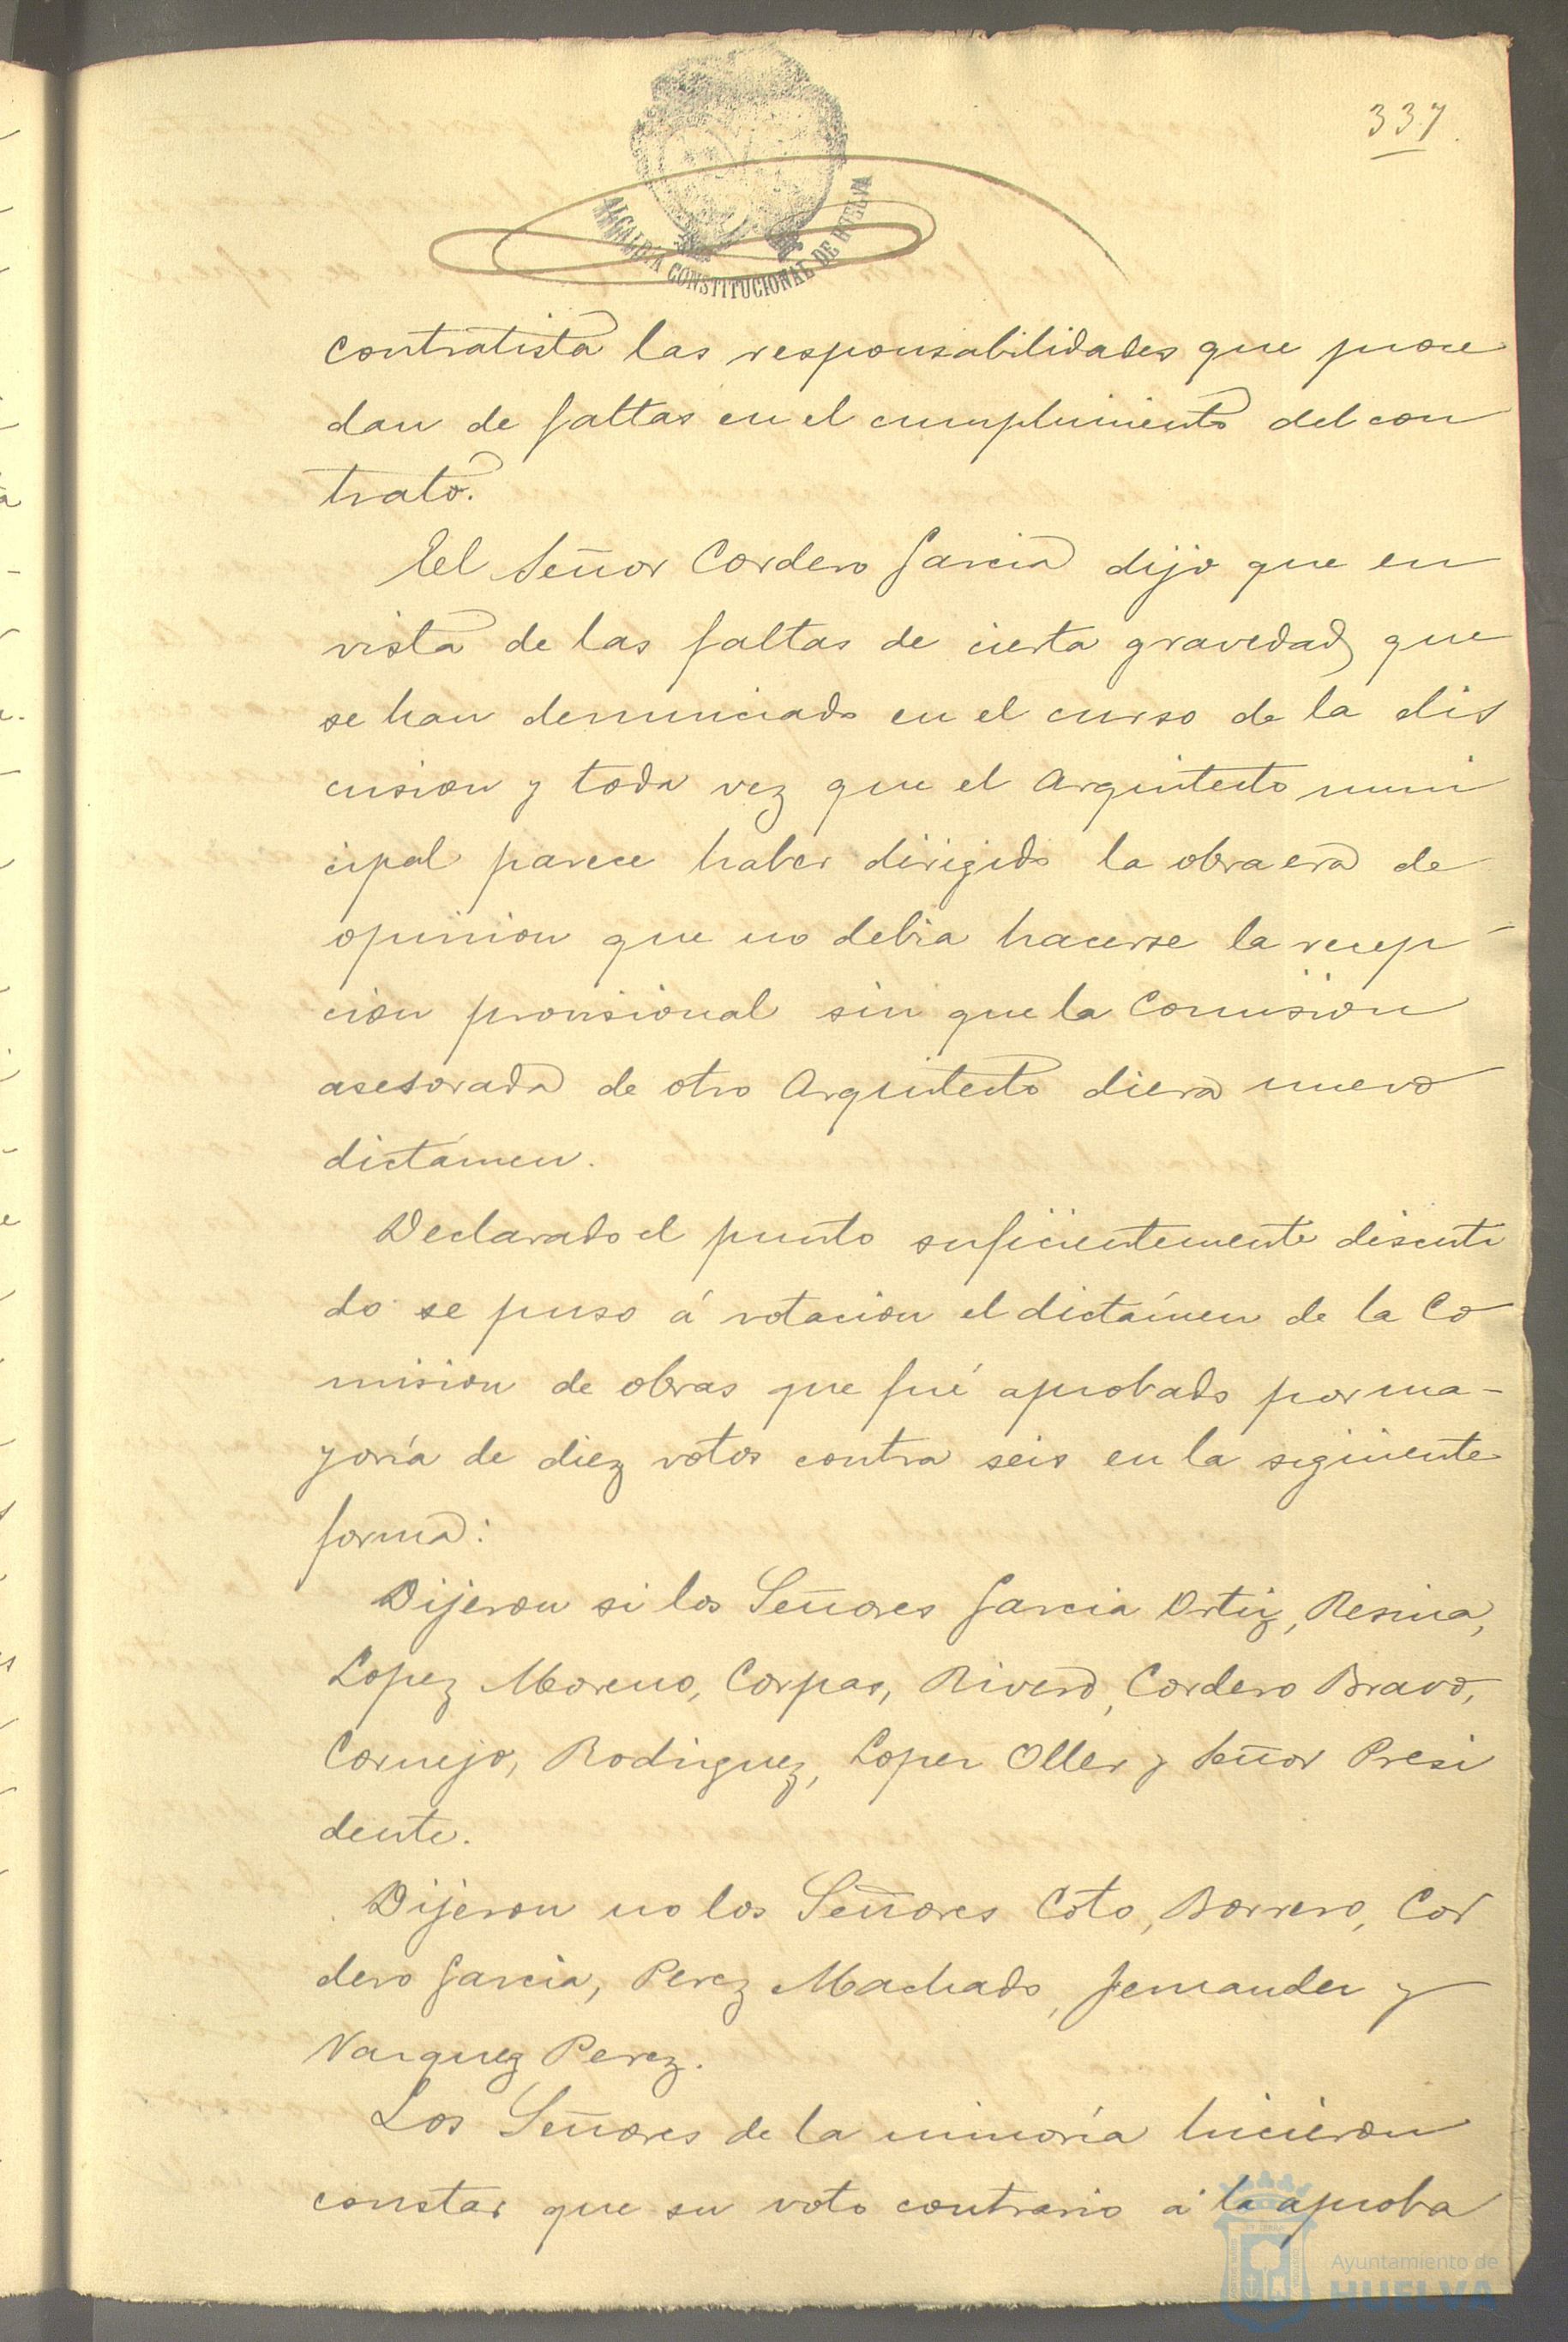 337.
ALCALDIA CONSTITUCIONAL DE HUELVA
contratista las responsabilidades que proce
dan de faltas en el cumplimiento del con
trato.
El Señor Cordero Garcia dijo que en
vista de las faltas de cierta gravedad que
se han denunciado en el curso de la dis
cusion y toda vez que el Arquitecto muni
cipal parece haber dirigido la obra era de
opinion que no debia hacerse la recep
cion provisional sin que la Comision
asesorada de otro Arquitecto diera nuevo
dictámen.
Declarado el punto suficientemente discuti
do se puso á votacion el dictámen de la Co
mision de obras que fué aprobado por ma-
yoría de diez votos contra seis en la siguiente
forma:
Dijeron si los Señores Garcia Ortiz, Resina,
Lopez Moreno, Corpas, Rivero, Cordero Bravo,
Cornejo, Rodriguez, Lopez Oller y Señor Presi
dente.
Dijeron no los Señores Coto, Borrero, Cor
dero Garcia, Perez Machado, Fernandez y
Vazquez Perez.
Los Señores de la minoría hicieron
constar que su voto contrario á la aproba
Ayuntamiento de
HUELVA